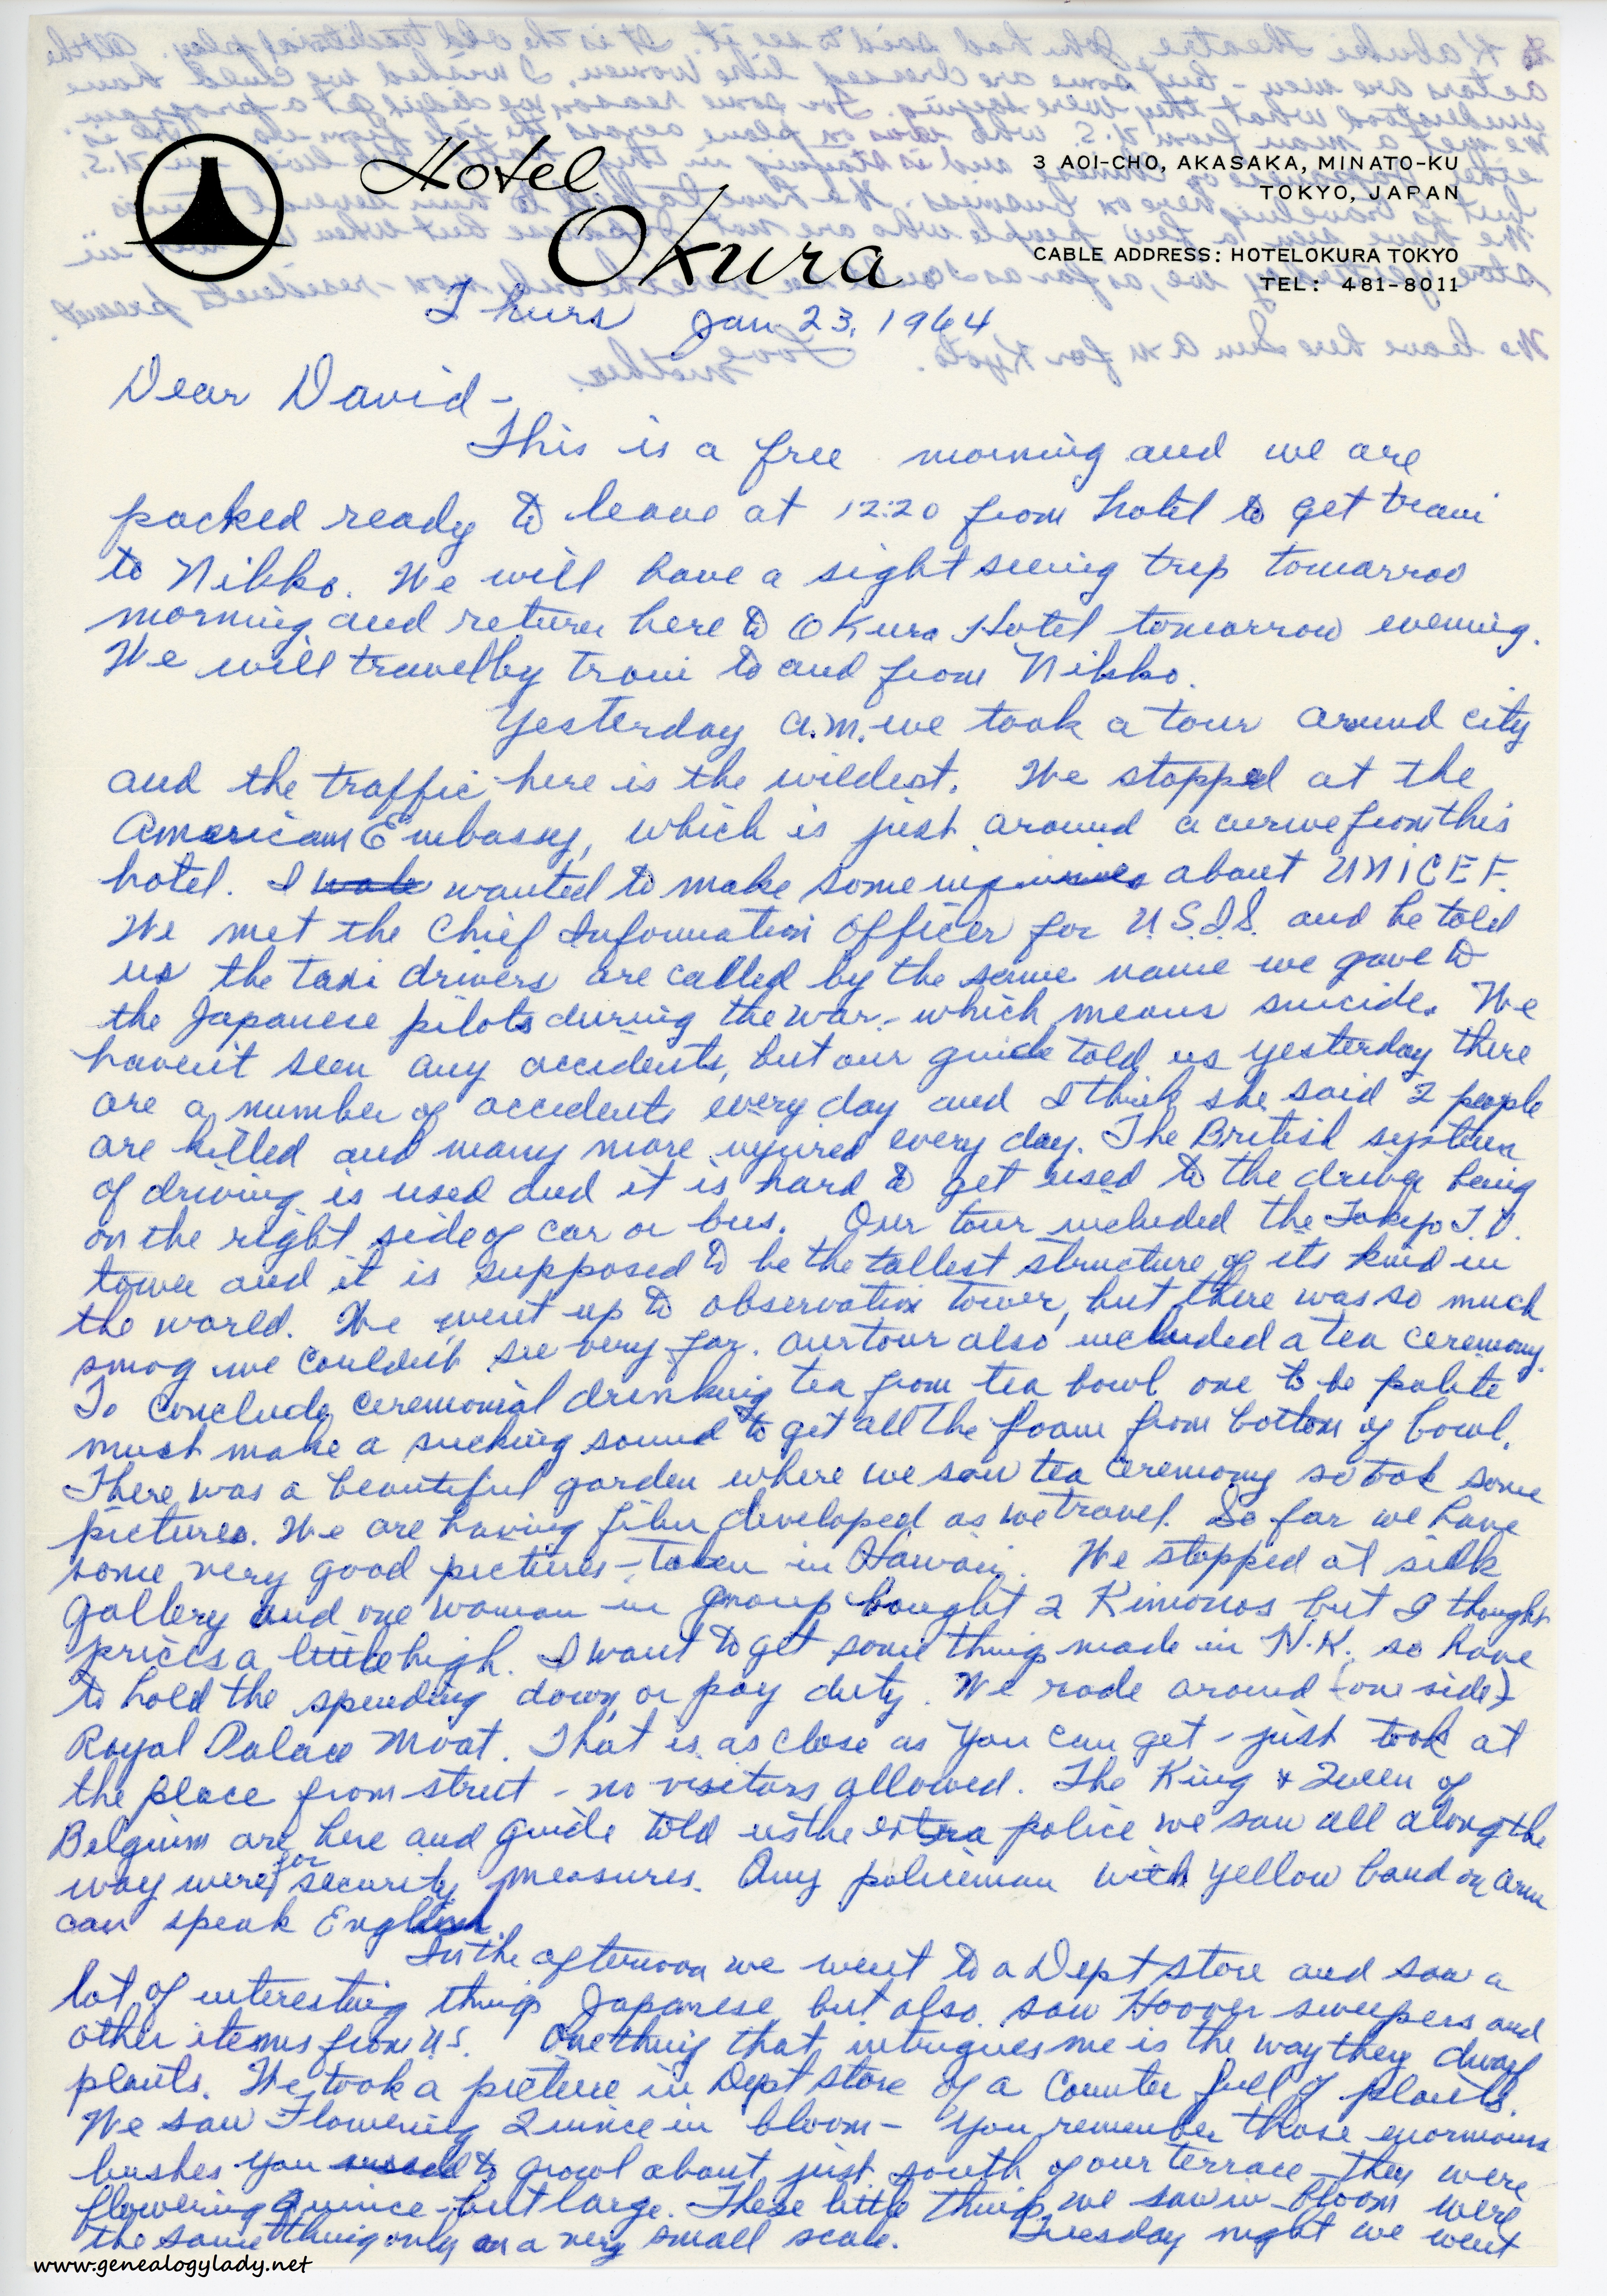 Hotel
Okura
3 AOI-CHO, AKASAKA, MINATO-KU
TOKYO, JAPAN
CABLE ADDRESS: HOTELOKURA TOKYO
TEL: 481-8011
Thurs Jan 23, 1964
Dear David -
This is a free morning and we are
packed ready to leave at 12:20 from hotel to get train
to Nikko. We will have a sight seeing trip tomorrow
morning and return here to Okura Hotel tomorrow evening.
We will travel by train to and from Nikko.
Yesterday a.m. we took a tour around city
and the traffic here is the wildest. We stopped at the
American Embassy, which is just around a curve from this
hotel. I wanted to make some inquiries about UNICEF.
We met the Chief Information Officer for U.S.I.S. and he told
us the taxi drivers are called by the same name we gave to
the Japanese pilots during the war - which means suicide. We
haven't seen any accidents, but our guide told us yesterday there
are a number of accidents every day and I think she said 2 people
are killed and many more injured every day. The British system
of driving is used and it is hard to get used to the driver being
on the right side of car or bus. Our tour included the Tokyo T.V.
tower and it is supposed to be the tallest structure of its kind in
the world. We went up to observation tower, but there was so much
smog we couldn't see very far. Our tour also included a tea ceremony.
To conclude ceremonial drinking tea from tea bowl one to be polite
must make a sucking sound to get all the foam from bottom of bowl.
There was a beautiful garden where we saw tea ceremony so took some
pictures. We are having film developed as we travel. So far we have
some very good pictures - taken in Hawaii. We stopped at silk
gallery and one woman in group bought 2 Kimonos but I thought
prices a little high. I want to get some things made in H.K. so have
to hold the spending down or pay duty. We rode around (one side)
Royal Palace Moat. That is as close as you can get - just took at
the place from street - no visitors allowed. The King & Queen of
Belgium are here and guide told us the extra police we saw all along the
way were for security measures. Any policeman with yellow band on arm
can speak English.
In the afternoon we went to a Dept store and saw a
lot of interesting things Japanese but also saw Hoover sweepers and
other items from U.S. One thing that intrigues me is the way they dwarf
plants. We took a picture in Dept store of a counter full of plants.
We saw Flowering Quince in bloom - You remember those enormous
bushes you used to growl about just south of our terrace - they were
flowering quince - but large. These little things we saw in bloom were
the same thing only on a very small scale. Tuesday night we went
www.genealogylady.net